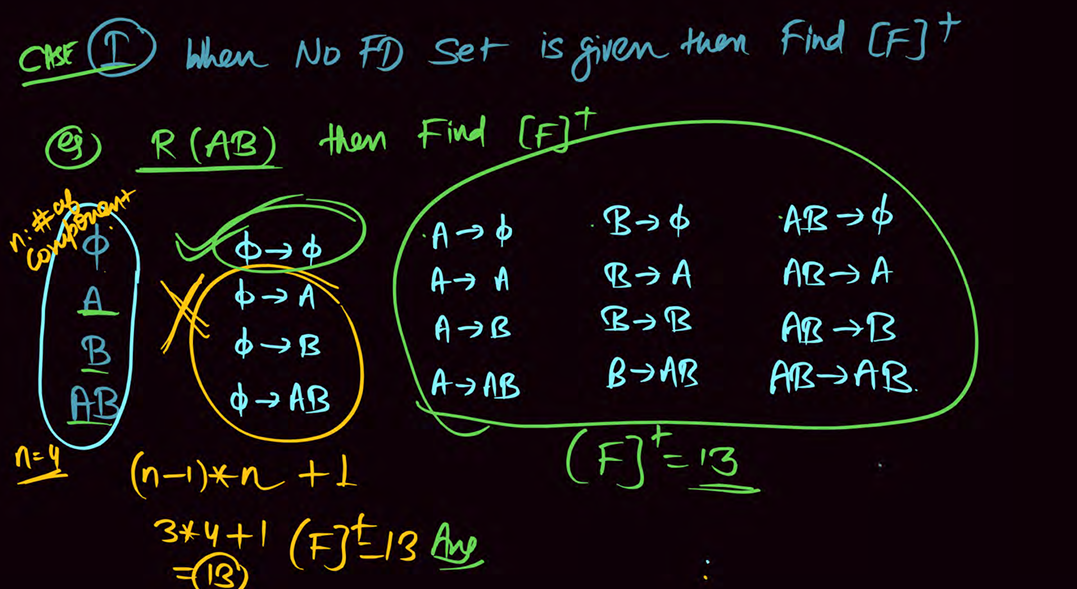 CASE I When No FD Set is given then Find [F]+
eg R(AB) then Find [F]+
n: # of component
ϕ
A
B
AB
n=4
ϕ → ϕ
ϕ → A
ϕ → B
ϕ → AB
A → ϕ
A → A
A → B
A → AB
B → ϕ
B → A
B → B
B → AB
AB → ϕ
AB → A
AB → B
AB → AB.
(n-1)*n + 1
3*4+1
= 13
[F]+ = 13 Ans
[F]+ = 13